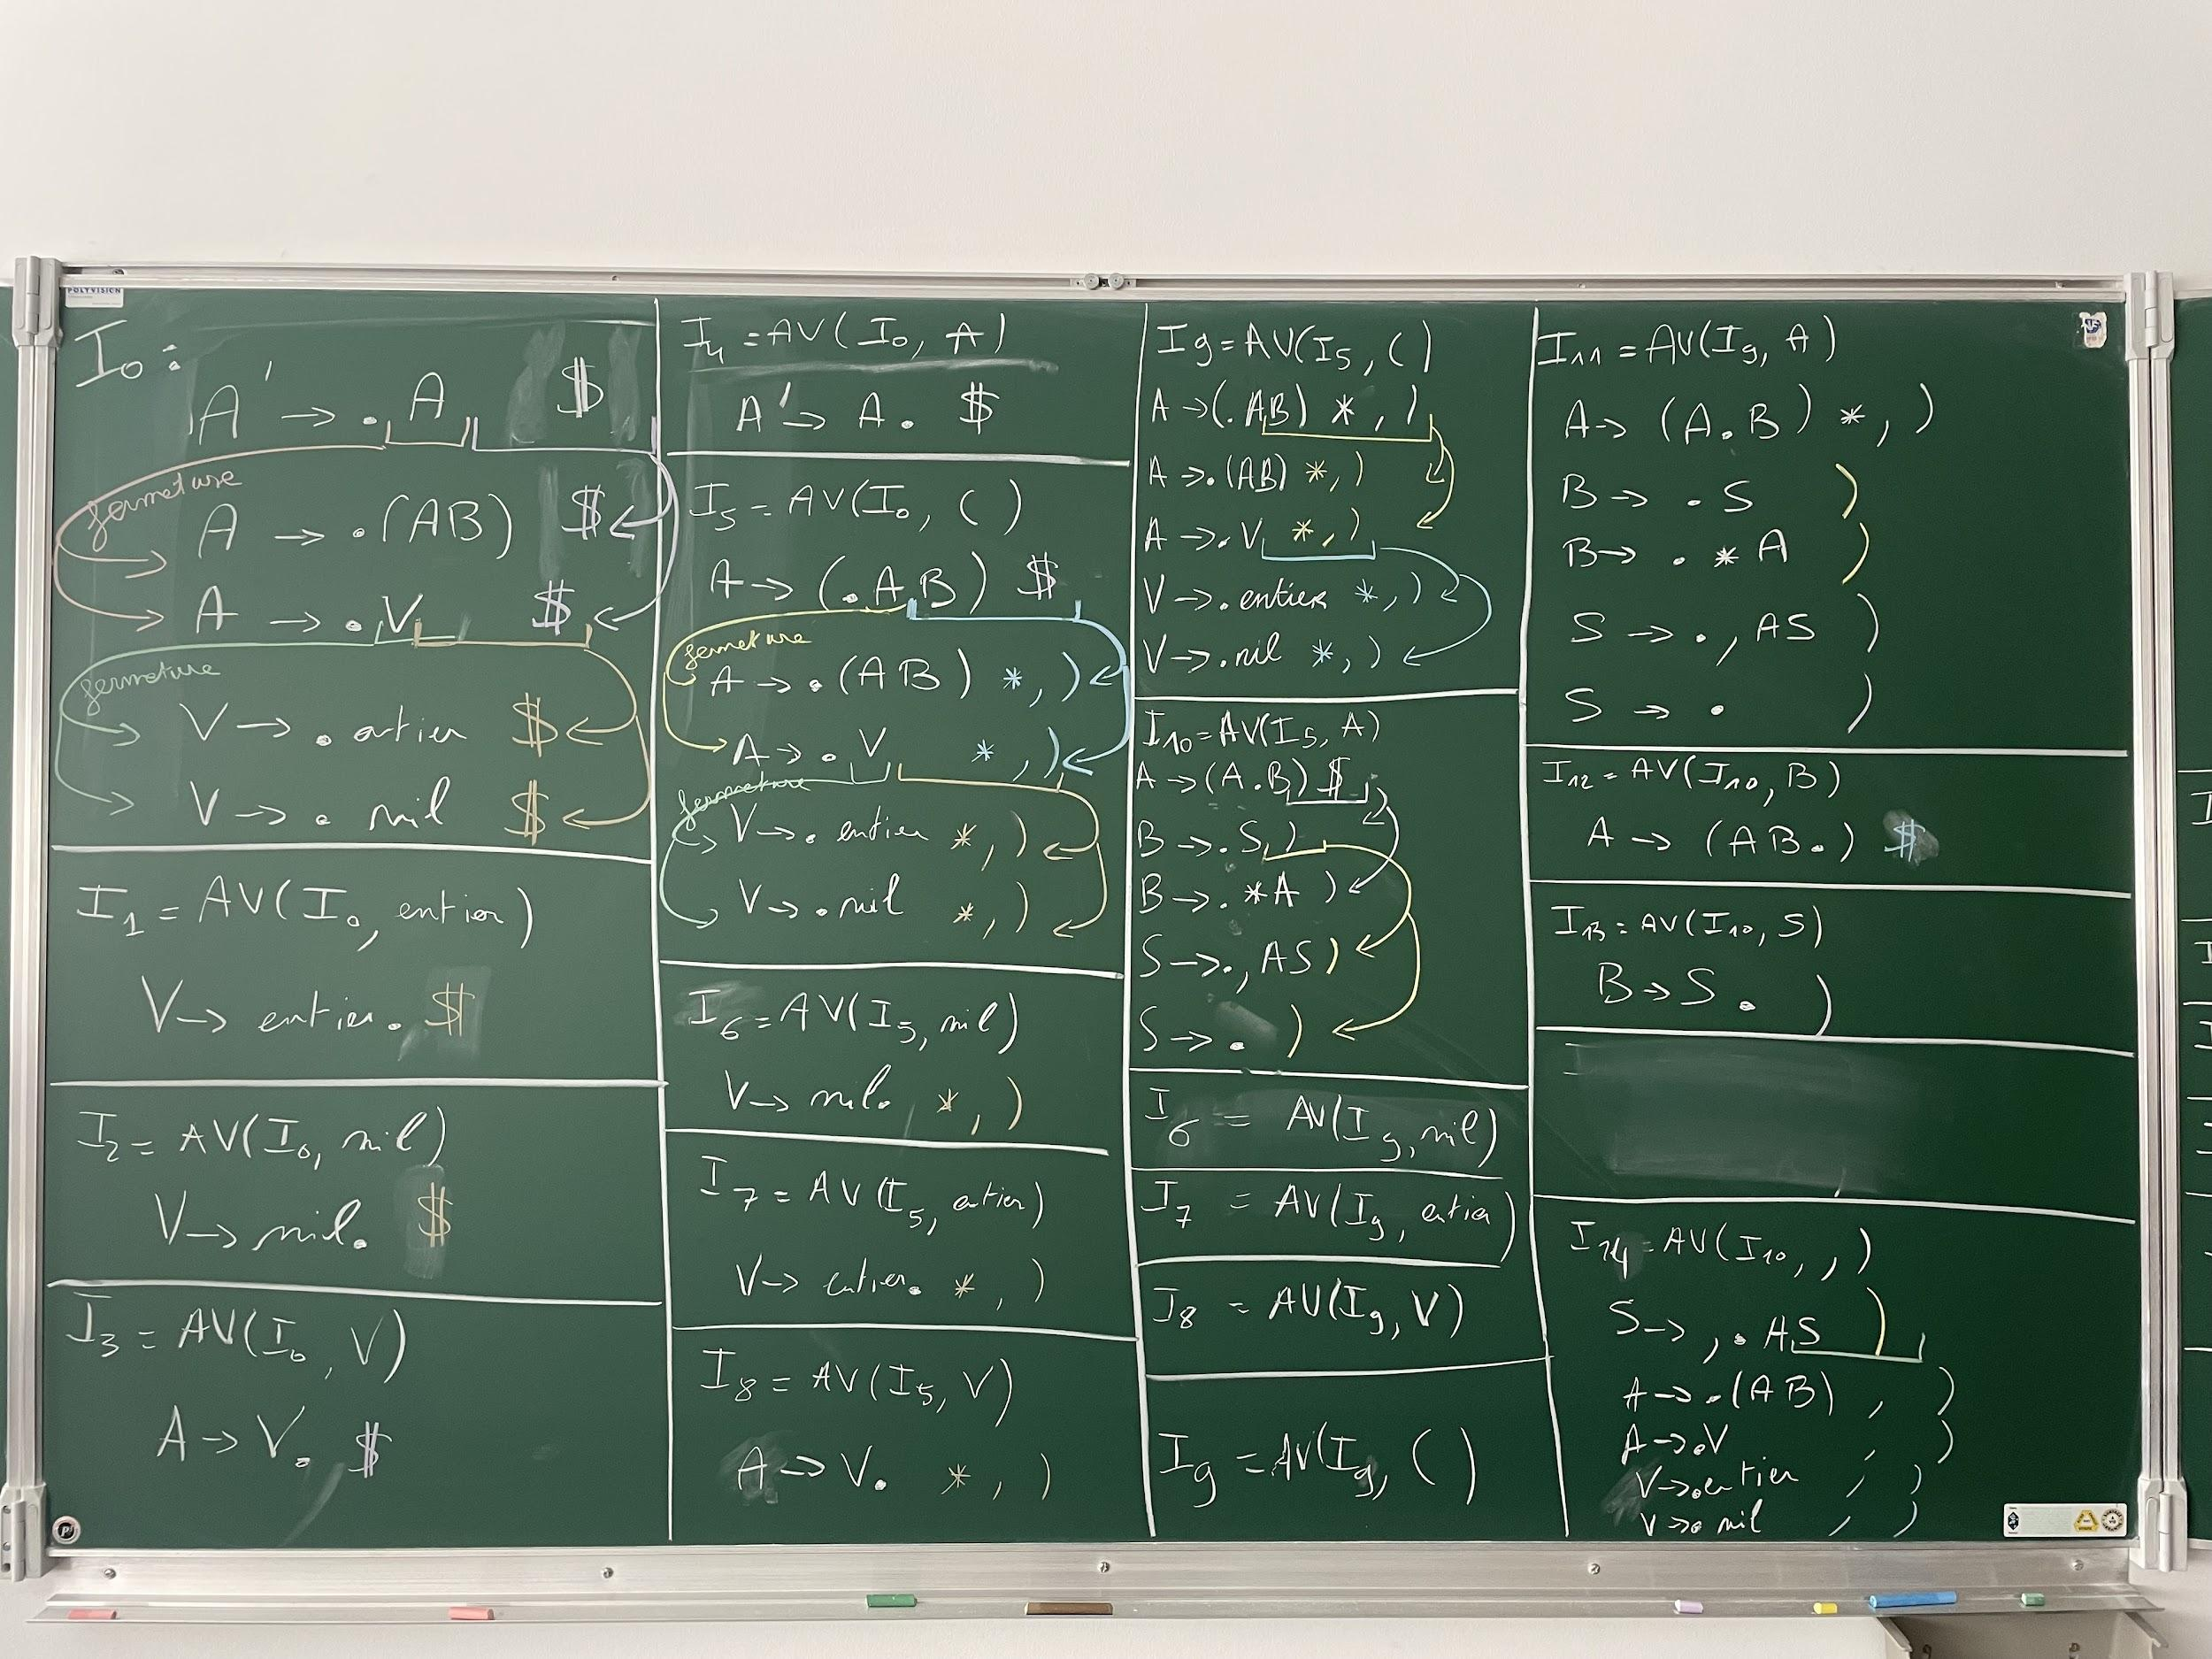 POLYVISION
I₀ :
A' → . A $
fermeture
A → .(AB) $
A → .V $
fermeture
V → . entier $
V → . nil $
I₁ = AV(I₀, entier)
V → entier. $
I₂ = AV(I₀, nil)
V → nil. $
I₃ = AV(I₀, V)
A → V. $
I₄ = AV(I₀, A)
A' → A. $
I₅ = AV(I₀, ()
A → (.AB) $
fermeture
A → .(AB) *,)
A → .V *,)
fermeture
V → . entier *,)
V → . nil *,)
I₆ = AV(I₅, nil)
V → nil. *,)
I₇ = AV(I₅, entier)
V → entier. *,)
I₈ = AV(I₅, V)
A → V. *,)
I₉ = AV(I₅, ()
A → (.AB) *,)
A → .(AB) *,)
A → .V *,)
V → .entier *,)
V → .nil *,)
I₁₀ = AV(I₅, A)
A → (A.B) $
B → .S )
B → .*A )
S → .,AS )
S → . )
I₆ = AV(I₉, nil)
I₇ = AV(I₉, entier)
I₈ = AV(I₉, V)
I₉ = AV(I₉, ()
I₁₁ = AV(I₉, A)
A → (A.B) *,)
B → .S )
B → .*A )
S → .,AS )
S → . )
I₁₂ = AV(I₁₀, B)
A → (AB.) $
I₁₃ = AV(I₁₀, S)
B → S. )
I₁₄ = AV(I₁₀, ,)
S → ,.AS )
A → .(AB) , )
A → .V , )
V → .entier , )
V → . nil , )